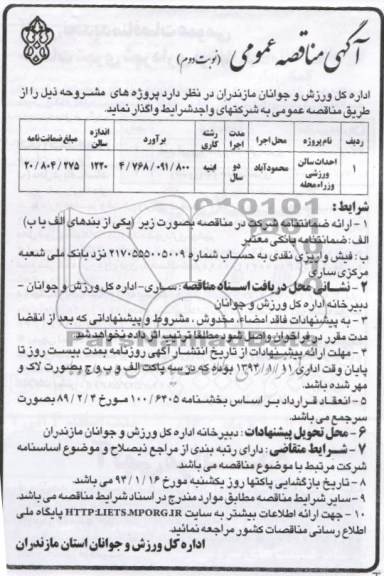 آگهی مناقصه عمومی (نوبت دوم)
اداره کل ورزش و جوانان مازندران در نظر دارد پروژه های مشروحه ذیل را از
طریق مناقصه عمومی به شرکتهای واجدشرایط واگذار نماید.
ردیف نام پروژه محل اجرا مدت اجرا رشته کاری برآورد اندازه سالن مبلغ ضمانت نامه
۱ احداث سالن ورزشی وزراء محله محمودآباد دو سال ابنیه ۴/۷۶۸/۰۹۱/۸۰۰ ۱۲۲۰ ۲۰/۸۰۴/۲۷۵
شرایط:
۱- ارائه ضمانتنامه شرکت در مناقصه بصورت زیر (یکی از بندهای الف یا ب)
الف: ضمانتنامه بانکی معتبر
ب: فیش واریزی نقدی به حساب شماره ۲۱۷۰۵۵۵۰۰۵۰۰۹ نزد بانک ملی شعبه
مرکزی ساری
۲- نشانی محل دریافت اسناد مناقصه: ساری- اداره کل ورزش و جوانان -
دبیرخانه اداره کل ورزش و جوانان
۳- به پیشنهادات فاقد امضاء، مخدوش، مشروط و پیشنهاداتی که بعد از انقضا
مدت مقرر در فراخوان واصل شود مطلقا ترتیب اثر داده نخواهد شد.
۴- مهلت ارائه پیشنهادات از تاریخ انتشار آگهی روزنامه بمدت بیست روز تا
پایان وقت اداری ۱۳۹۴/۱/۱۱ بوده که در سه پاکت الف و ب و ج بصورت لاک و
مهر شده باشد.
۵- انعقاد قرارداد بر اساس بخشنامه ۱۰۰/۶۴۰۵ مورخ ۸۹/۲/۴ بصورت
سرجمع می باشد.
۶- محل تحویل پیشنهادات: دبیرخانه اداره کل ورزش و جوانان مازندران
۷- شرایط متقاضی: دارای رتبه بندی از مراجع ذیصلاح و موضوع اساسنامه
شرکت مرتبط با موضوع مناقصه می باشد.
۸- تاریخ بازگشایی پاکتها روز یکشنبه مورخ ۹۴/۱/۱۶ می باشد.
۹- سایر شرایط مناقصه مطابق موارد مندرج در اسناد شرایط مناقصه می باشد.
۱۰- جهت ارائه اطلاعات بیشتر به سایت HTTP:LIETS.MPORG.IR پایگاه ملی
اطلاع رسانی مناقصات کشور مراجعه نمائید.
اداره کل ورزش و جوانان استان مازندران